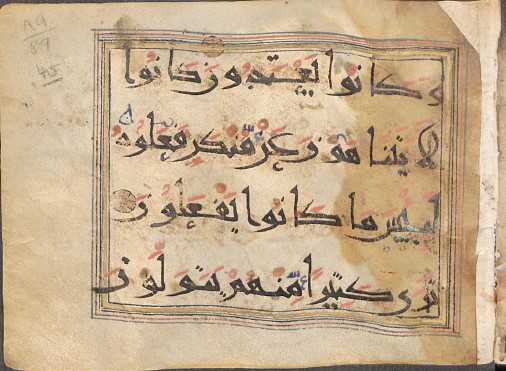 89
45
وكانوا يعتدون كانوا
لا يتناهون عن منكر فعلوه
لبيس ما كانوا يفعلون
ترى كثيرا منهم يتولون